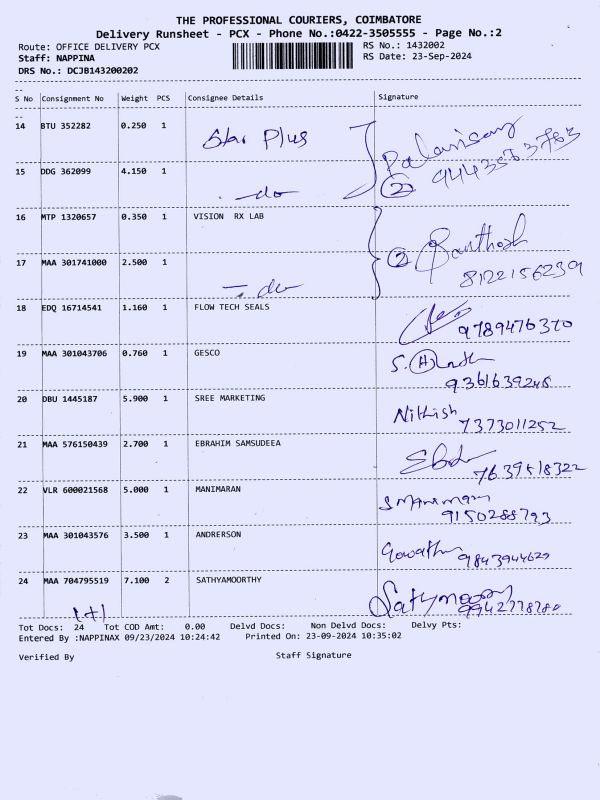 THE PROFESSIONAL COURIERS, COIMBATORE
Delivery Runsheet - PCX - Phone No.:0422-3505555 - Page No.:2
Route: OFFICE DELIVERY PCX RS No.: 1432002
Staff: NAPPINA RS Date: 23-Sep-2024
DRS No.: DCJB143200202
S No Consignment No Weight PCS Consignee Details Signature
14 BTU 352282 0.250 1 Star Plus Palanisamy
15 DDG 362099 4.150 1 - do - 2
16 MTP 1320657 0.350 1 VISION RX LAB Santhosh
17 MAA 301741000 2.500 1 - do 2
18 EDQ 16714541 1.160 1 FLOW TECH SEALS 9789476370
19 MAA 301043706 0.760 1 GESCO
20 DBU 1445187 5.900 1 SREE MARKETING Nithish 7373011252
21 MAA 576150439 2.700 1 EBRAHIM SAMSUDEEA 7639518322
22 VLR 600021568 5.000 1 MANIMARAN 9150288793
23 MAA 301043576 3.500 1 ANDRERSON 9843944629
24 MAA 704795519 7.100 2 SATHYAMOORTHY
1+1
Tot Docs: 24 Tot COD Amt: 0.00 Delvd Docs: Non Delvd Docs: Delvy Pts:
Entered By :NAPPINAX 09/23/2024 10:24:42 Printed On: 23-09-2024 10:35:02
Verified By Staff Signature